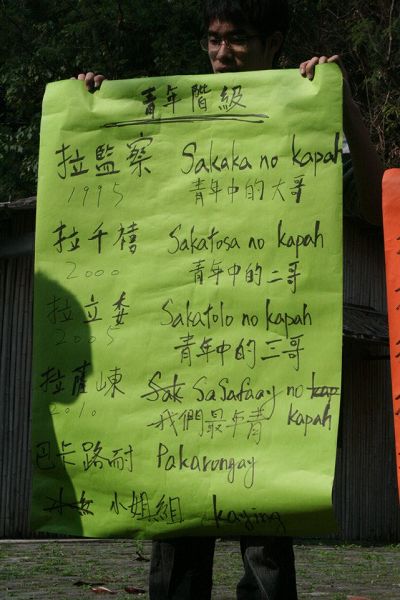 青年階級
拉監察 Sakaka no kapah
1995 青年中的大哥
拉千禧 Sakatosa no kapah
2000 青年中的二哥
拉立委 Sakatolo no kapah
2005 青年中的三哥
拉薩崠 Sak Sasafaay no kap
2010 我們最年青 kapah
巴卡路耐 Pakarongay
小姐組 kaying